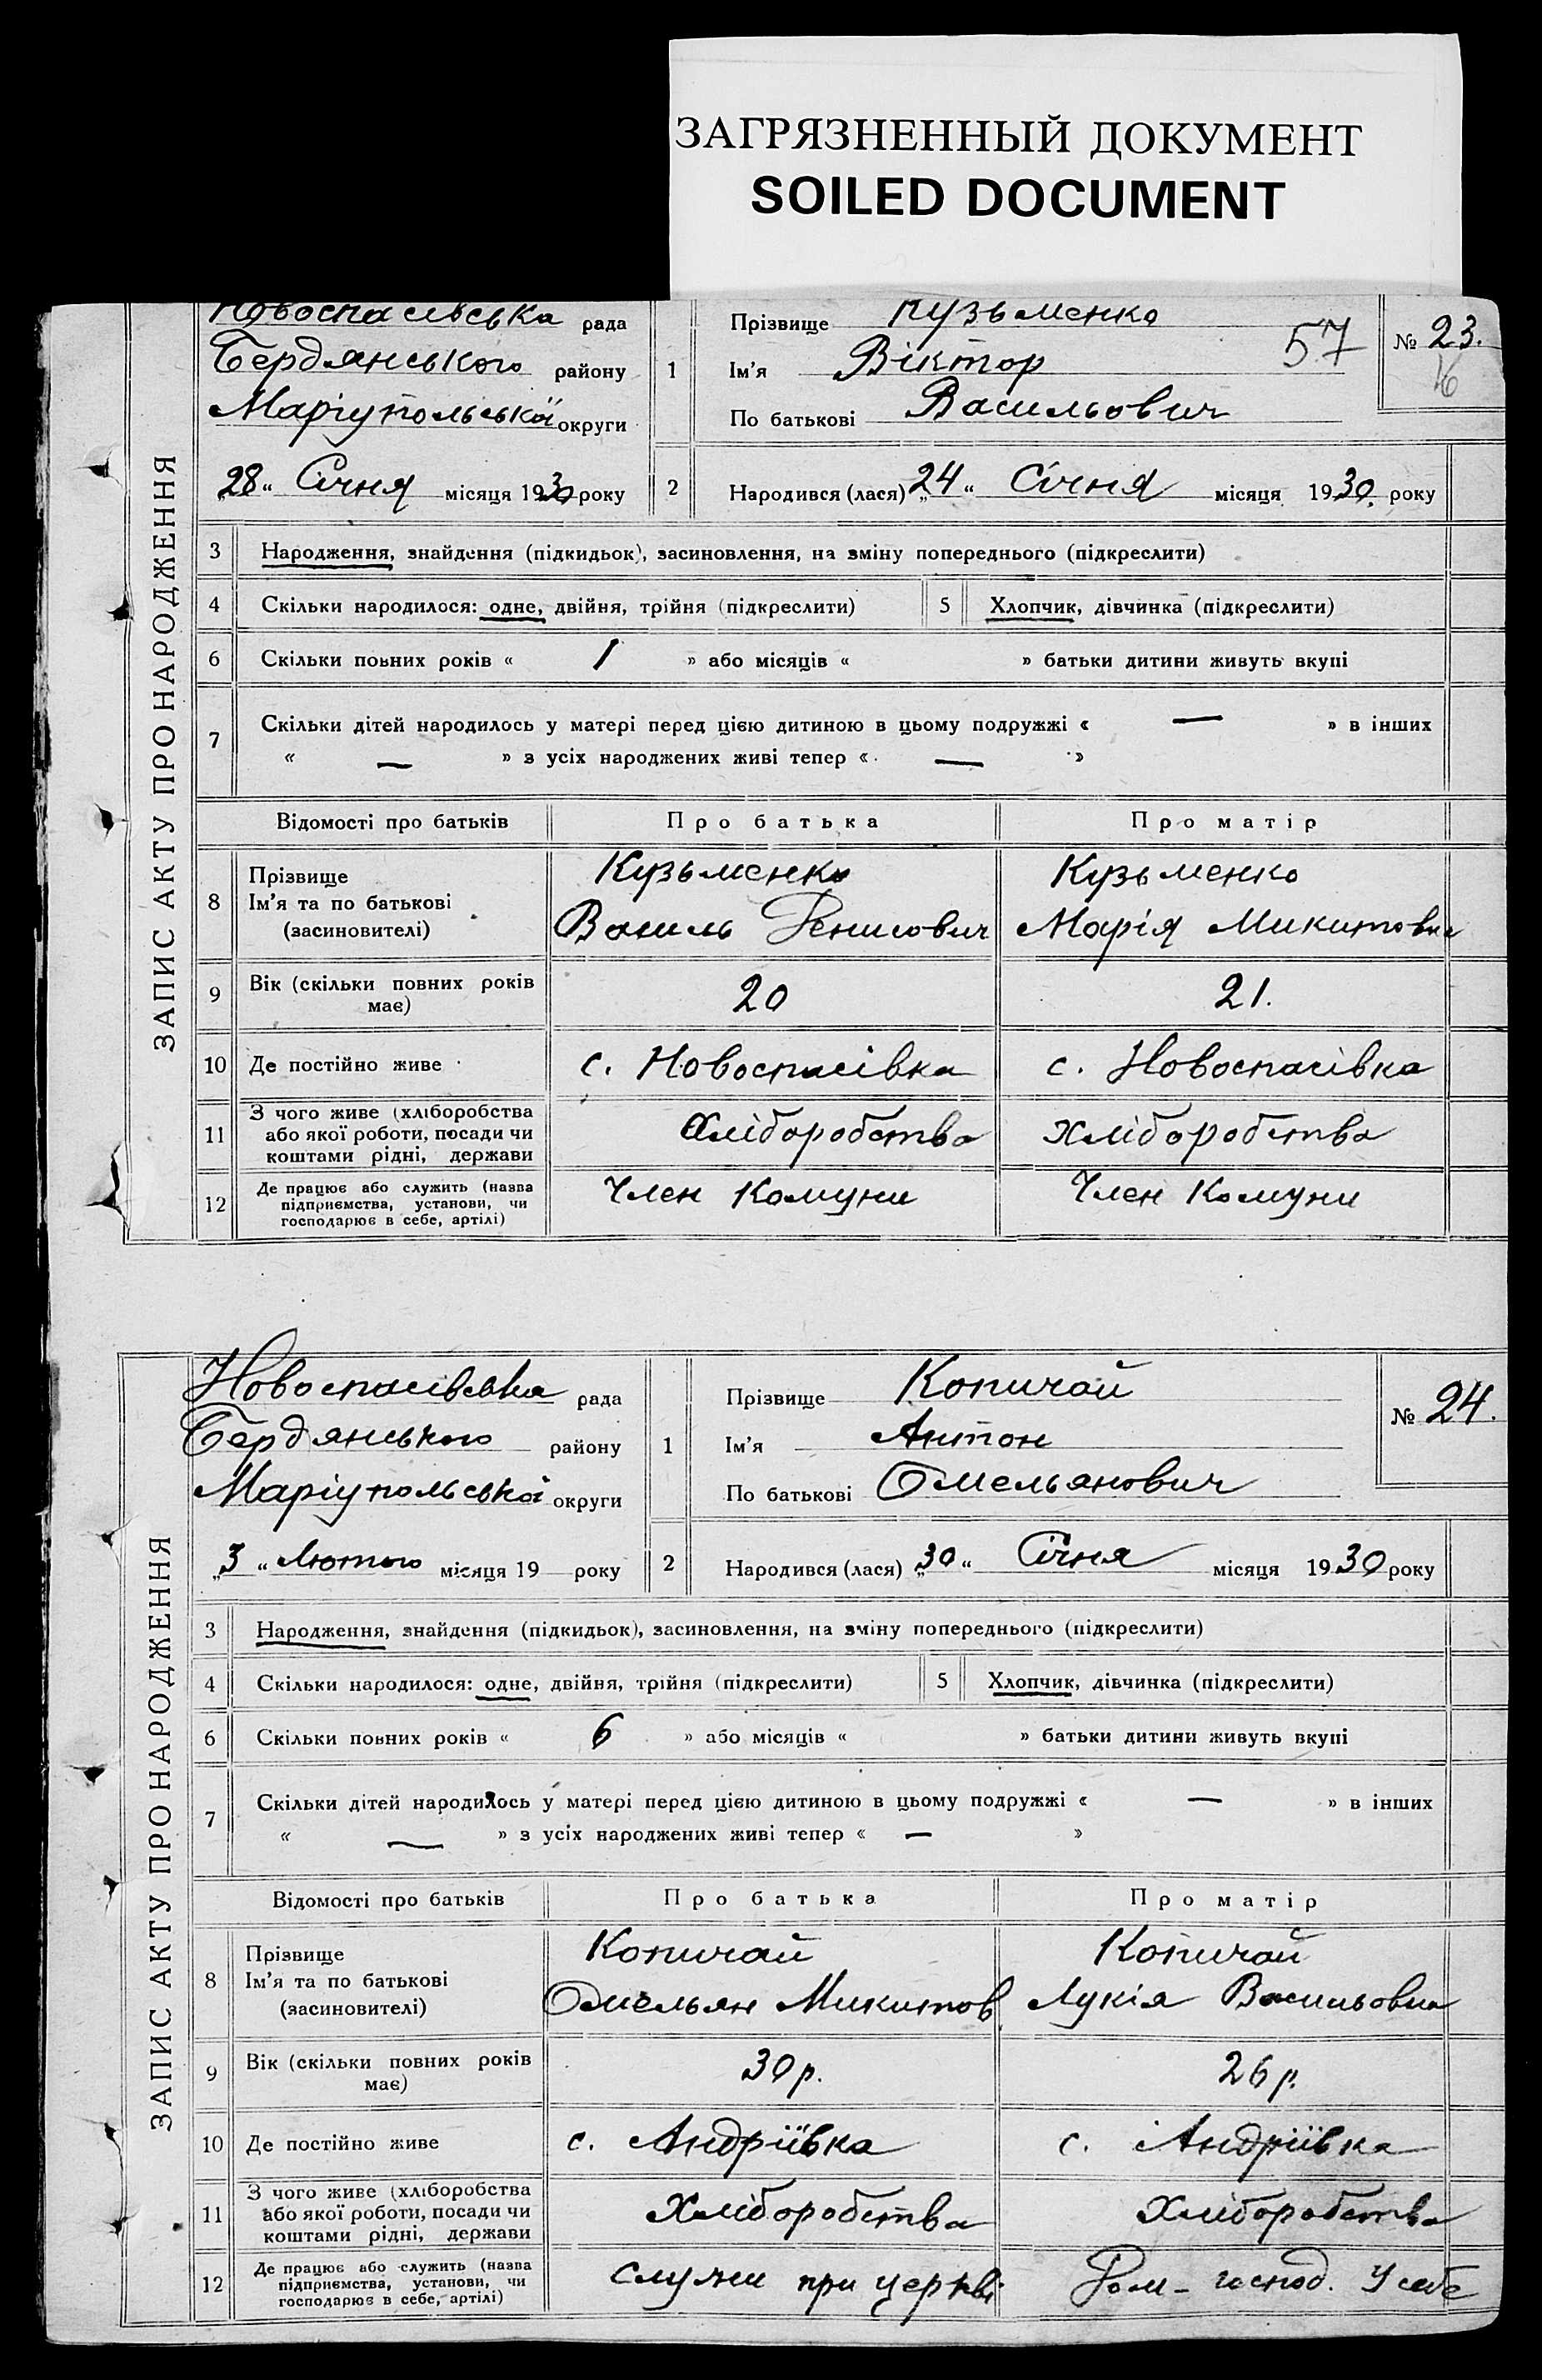 ЗАГРЯЗНЕННЫЙ ДОКУМЕНТ
SOILED DOCUMENT
ЗАПИС АКТУ ПРО НАРОДЖЕННЯ
Новоспасівська рада
Бердянського району
Маріупольської округи
28 " Січня місяця 1930 року
1 Прізвище Кузьменко
Ім'я Віктор
По батькові Васильович
57
№ 23.
16
2 Народився (лася) „24 " Січня місяця 1930. року
3 Народження, знайдення (підкидьок), засиновлення, на зміну попереднього (підкреслити)
4 Скільки народилося: одне, двійня, трійня (підкреслити) 5 Хлопчик, дівчинка (підкреслити)
6 Скільки повних років « 1 » або місяців « » батьки дитини живуть вкупі
7 Скільки дітей народилось у матері перед цією дитиною в цьому подружжі « — » в інших
« — » з усіх народжених живі тепер « — »
Відомості про батьків Про батька Про матір
8 Прізвище Кузьменко Кузьменко
Ім'я та по батькові Василь Денисович Марія Микитовна
(засиновителі)
9 Вік (скільки повних років має) 20 21.
10 Де постійно живе с. Новоспасівка с. Новоспасівка
11 З чого живе (хліборобства
або якої роботи, посади чи Хліборобства хліборобства
коштами рідні, держави
12 Де працює або служить (назва Член Комуни Член Комуни
підприємства, установи, чи
господарює в себе, артілі)
ЗАПИС АКТУ ПРО НАРОДЖЕННЯ
Новоспасівська рада
Бердянського району
Маріупольської округи
„3 " Лютого місяця 19 року
1 Прізвище Копичай
Ім'я Антон
По батькові Омельянович
№ 24.
2 Народився (лася) „30 " Січня місяця 1930 року
3 Народження, знайдення (підкидьок), засиновлення, на зміну попереднього (підкреслити)
4 Скільки народилося: одне, двійня, трійня (підкреслити) 5 Хлопчик, дівчинка (підкреслити)
6 Скільки повних років « 6 » або місяців « » батьки дитини живуть вкупі
7 Скільки дітей народилось у матері перед цією дитиною в цьому подружжі « — » в інших
« — » з усіх народжених живі тепер « — »
Відомості про батьків Про батька Про матір
8 Прізвище Копичай Копичай
Ім'я та по батькові Омельян Микитов. Лукія Васильовна
(засиновителі)
9 Вік (скільки повних років має) 30 р. 26 р.
10 Де постійно живе с. Андріївка с. Андріївка
11 З чого живе (хліборобства
або якої роботи, посади чи Хліборобства Хліборобства
коштами рідні, держави
12 Де працює або служить (назва при церкві господ. У себе
підприємства, установи, чи
господарює в себе, артілі)